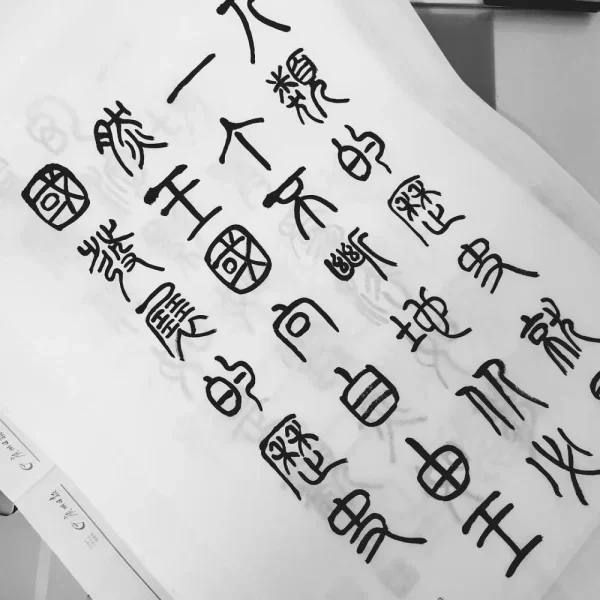 人類的歷史就
一个不斷地从必
然王國向自由王
國發展的歷史